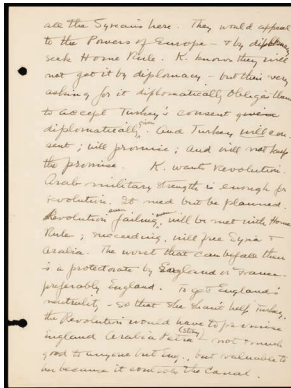 are the Syrians here. They would appeal
to the Powers of Europe - & by diplomacy
seek Home Rule. K. knows they will
not get it by diplomacy - but their very
asking for it diplomatically obliges them
to accept Turkey's consent given
diplomatically. And Turkey will con-
sent; will promise; And will not keep
the promise. K. wants Revolution.
Arab military strength is enough for
revolution. It need but be planned.
Revolution, even failing, will be met with Home
Rule; succeeding, will free Syria &
Arabia. The worst that can befall them
is a protectorate by England or France
preferably England. To get England's
neutrality - so that she shan't help Turkey,
the Revolution would have to promise
England Arabia Petrea - not much
good to anyone but valuable to
because it controls the Canal.